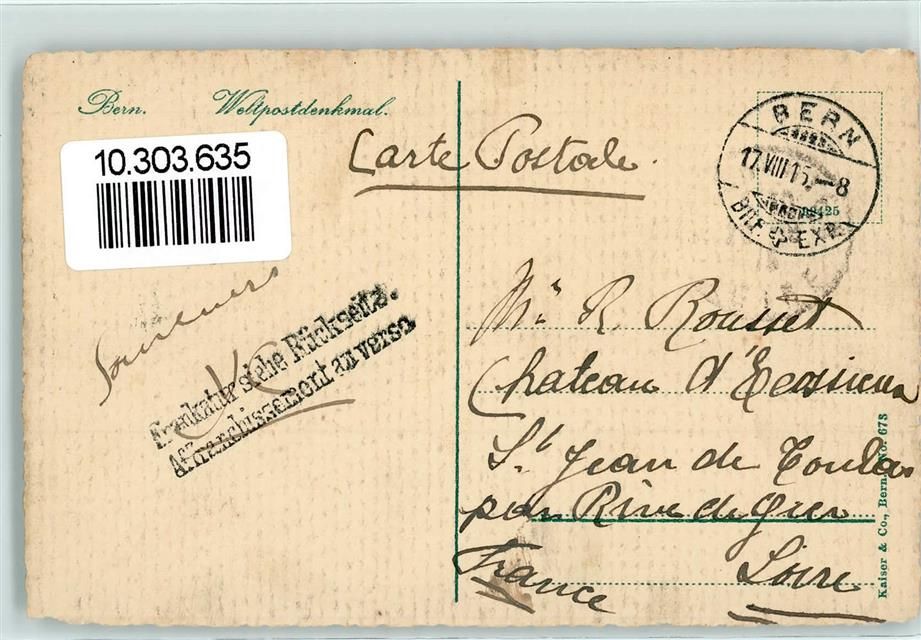 Bern. Weltpostdenkmal.
10.303.635
Carte Postale.
BERN
17.VIII.15.-8
BRF. EXP.
Souvenirs
Frankatur siehe Rückseite.
Affranchissement au verso
Mr R. Rousset
Chateau d'Ecossieux
St Jean de Toulas
par Rive de Gier
Loire
France
Kaiser & Co., Bern. No. 673